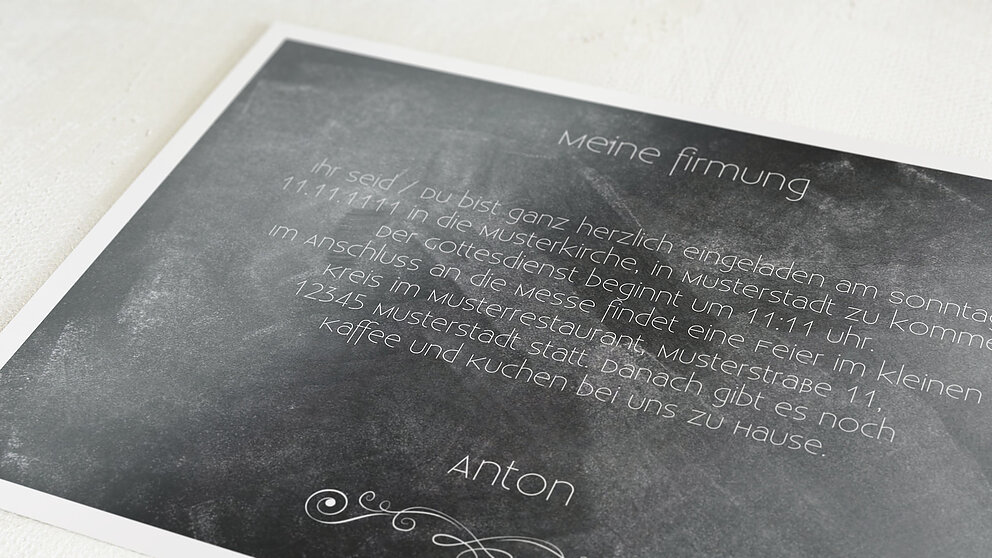 Meine Firmung
Ihr seid / Du bist ganz herzlich eingeladen am Sonntag
11.11.1111 in die Musterkirche, in Musterstadt zu komme
Der Gottesdienst beginnt um 11:11 Uhr.
Im Anschluss an die Messe findet eine Feier im kleinen
Kreis im Musterrestaurant, Musterstraße 11,
12345 Musterstadt statt. Danach gibt es noch
Kaffee und Kuchen bei uns zu Hause.
Anton